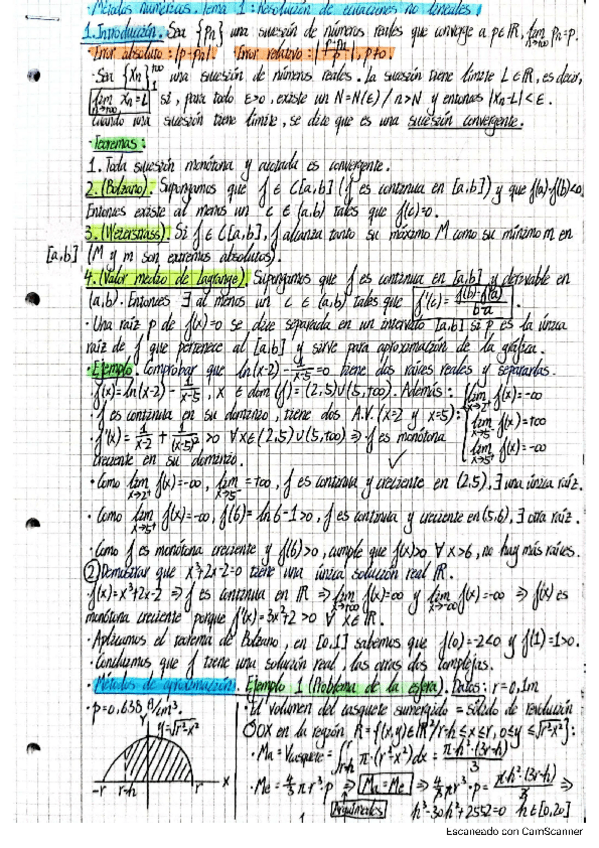 · Métodos numéricos. Tema 1: Resolución de ecuaciones no lineales
1. Introducción. Sea {pn} una sucesión de números reales que converge a p∈ℝ, lim n→∞ Pn=p.
· Error absoluto: |p-pn|. · Error relativo: |p-pn / p|, p≠0.
· Sea {Xn}₁^+∞ una sucesión de números reales. La sucesión tiene límite L∈ℝ, es decir,
lim n→∞ Xn=L si, para todo ε>0, existe un N=N(ε) / n>N y entonces |Xn-L|<ε.
Cuando una sucesión tiene límite, se dice que es una sucesión convergente.
· Teoremas:
1. Toda sucesión monótona y acotada es convergente.
2. (Bolzano). Supongamos que f ∈ C[a,b] (f es continua en [a,b]) y que f(a)·f(b)<0
Entonces existe al menos un c ∈ (a,b) tales que f(c)=0.
3. (Weierstrass). Si f ∈ C[a,b], f alcanza tanto su máximo M como su mínimo m en
[a,b] (M y m son extremos absolutos).
4. (Valor medio de Lagrange). Supongamos que f es continua en [a,b] y derivable en
(a,b). Entonces ∃ al menos un c ∈ (a,b) tales que f'(c) = f(b)-f(a) / b-a.
· Una raíz p de f(x)=0 se dice separada en un intervalo [a,b] si p es la única
raíz de f que pertenece al [a,b] y sirve para aproximación de la gráfica.
· Ejemplo. Comprobar que ln(x-2) - 1/x-5 =0 tiene dos raíces reales y separarlas.
· f(x)=ln(x-2) - 1/x-5, x ∈ dom(f) = (2,5)∪(5,+∞). Además: lim x→2⁺ f(x)=-∞
· f es continua en su dominio, tiene dos A.V. (x=2 y x=5): lim x→5⁻ f(x)=+∞
· f'(x) = 1/x-2 + 1/(x-5)² >0 ∀x∈(2,5)∪(5,+∞) ⇒ f es monótona lim x→5⁺ f(x)=-∞
creciente en su dominio. ✓
· Como lim x→2⁺ f(x)=-∞, lim x→5⁻ = +∞, f es continua y creciente en (2,5), ∃ una única raíz.
· Como lim x→5⁺ f(x)=-∞, f(6)= ln 6-1>0, f es continua y creciente en (5,6), ∃ otra raíz.
· Como f es monótona creciente y f(6)>0, cumple que f(x)>0 ∀ x>6, no hay más raíces.
② Demostrar que x³+2x-2=0 tiene una única solución real ℝ.
· f(x)=x³+2x-2 ⇒ f es continua en ℝ ⇒ lim x→+∞ f(x)=∞ y lim x→-∞ f(x)=-∞ ⇒ f(x) es
monótona creciente porque f'(x)=3x²+2 >0 ∀ x∈ℝ.
· Aplicamos el teorema de Bolzano, en [0,1] sabemos que f(0)=-2<0 y f(1)=1>0.
· Concluimos que f tiene una solución real, las otras dos complejas.
· Métodos de aproximación. Ejemplo 1 (Problema de la esfera). Datos: r=0,1m
· p=0,638 g/cm³.
· El volumen del casquete sumergido = sólido de revolución
OX en la región R={(x,y)∈ℝ²/r-h≤x≤r, 0≤y≤√r²-x²}:
· Ma=Vcasquete= ∫ r r-h π·(r²-x²)dx = π·h²·(3r-h) / 3
y=√r²-x²
Y
-r r-h r X
· Me = 4/3 π r³·p ⇒ Ma=Me ⇒ 4/3 π r³·p = π·h²·(3r-h) / 3 ⇒
Arquímedes h³-30h²+2552=0 h∈[0,20]
Escaneado con CamScanner